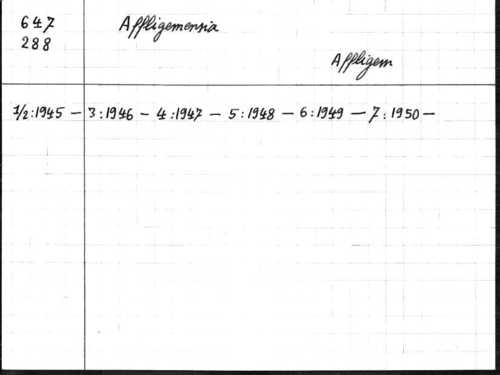 647
288
Affligemensia
Affligem
1/2:1945 — 3:1946 — 4:1947 — 5:1948 — 6:1949 — 7:1950 —